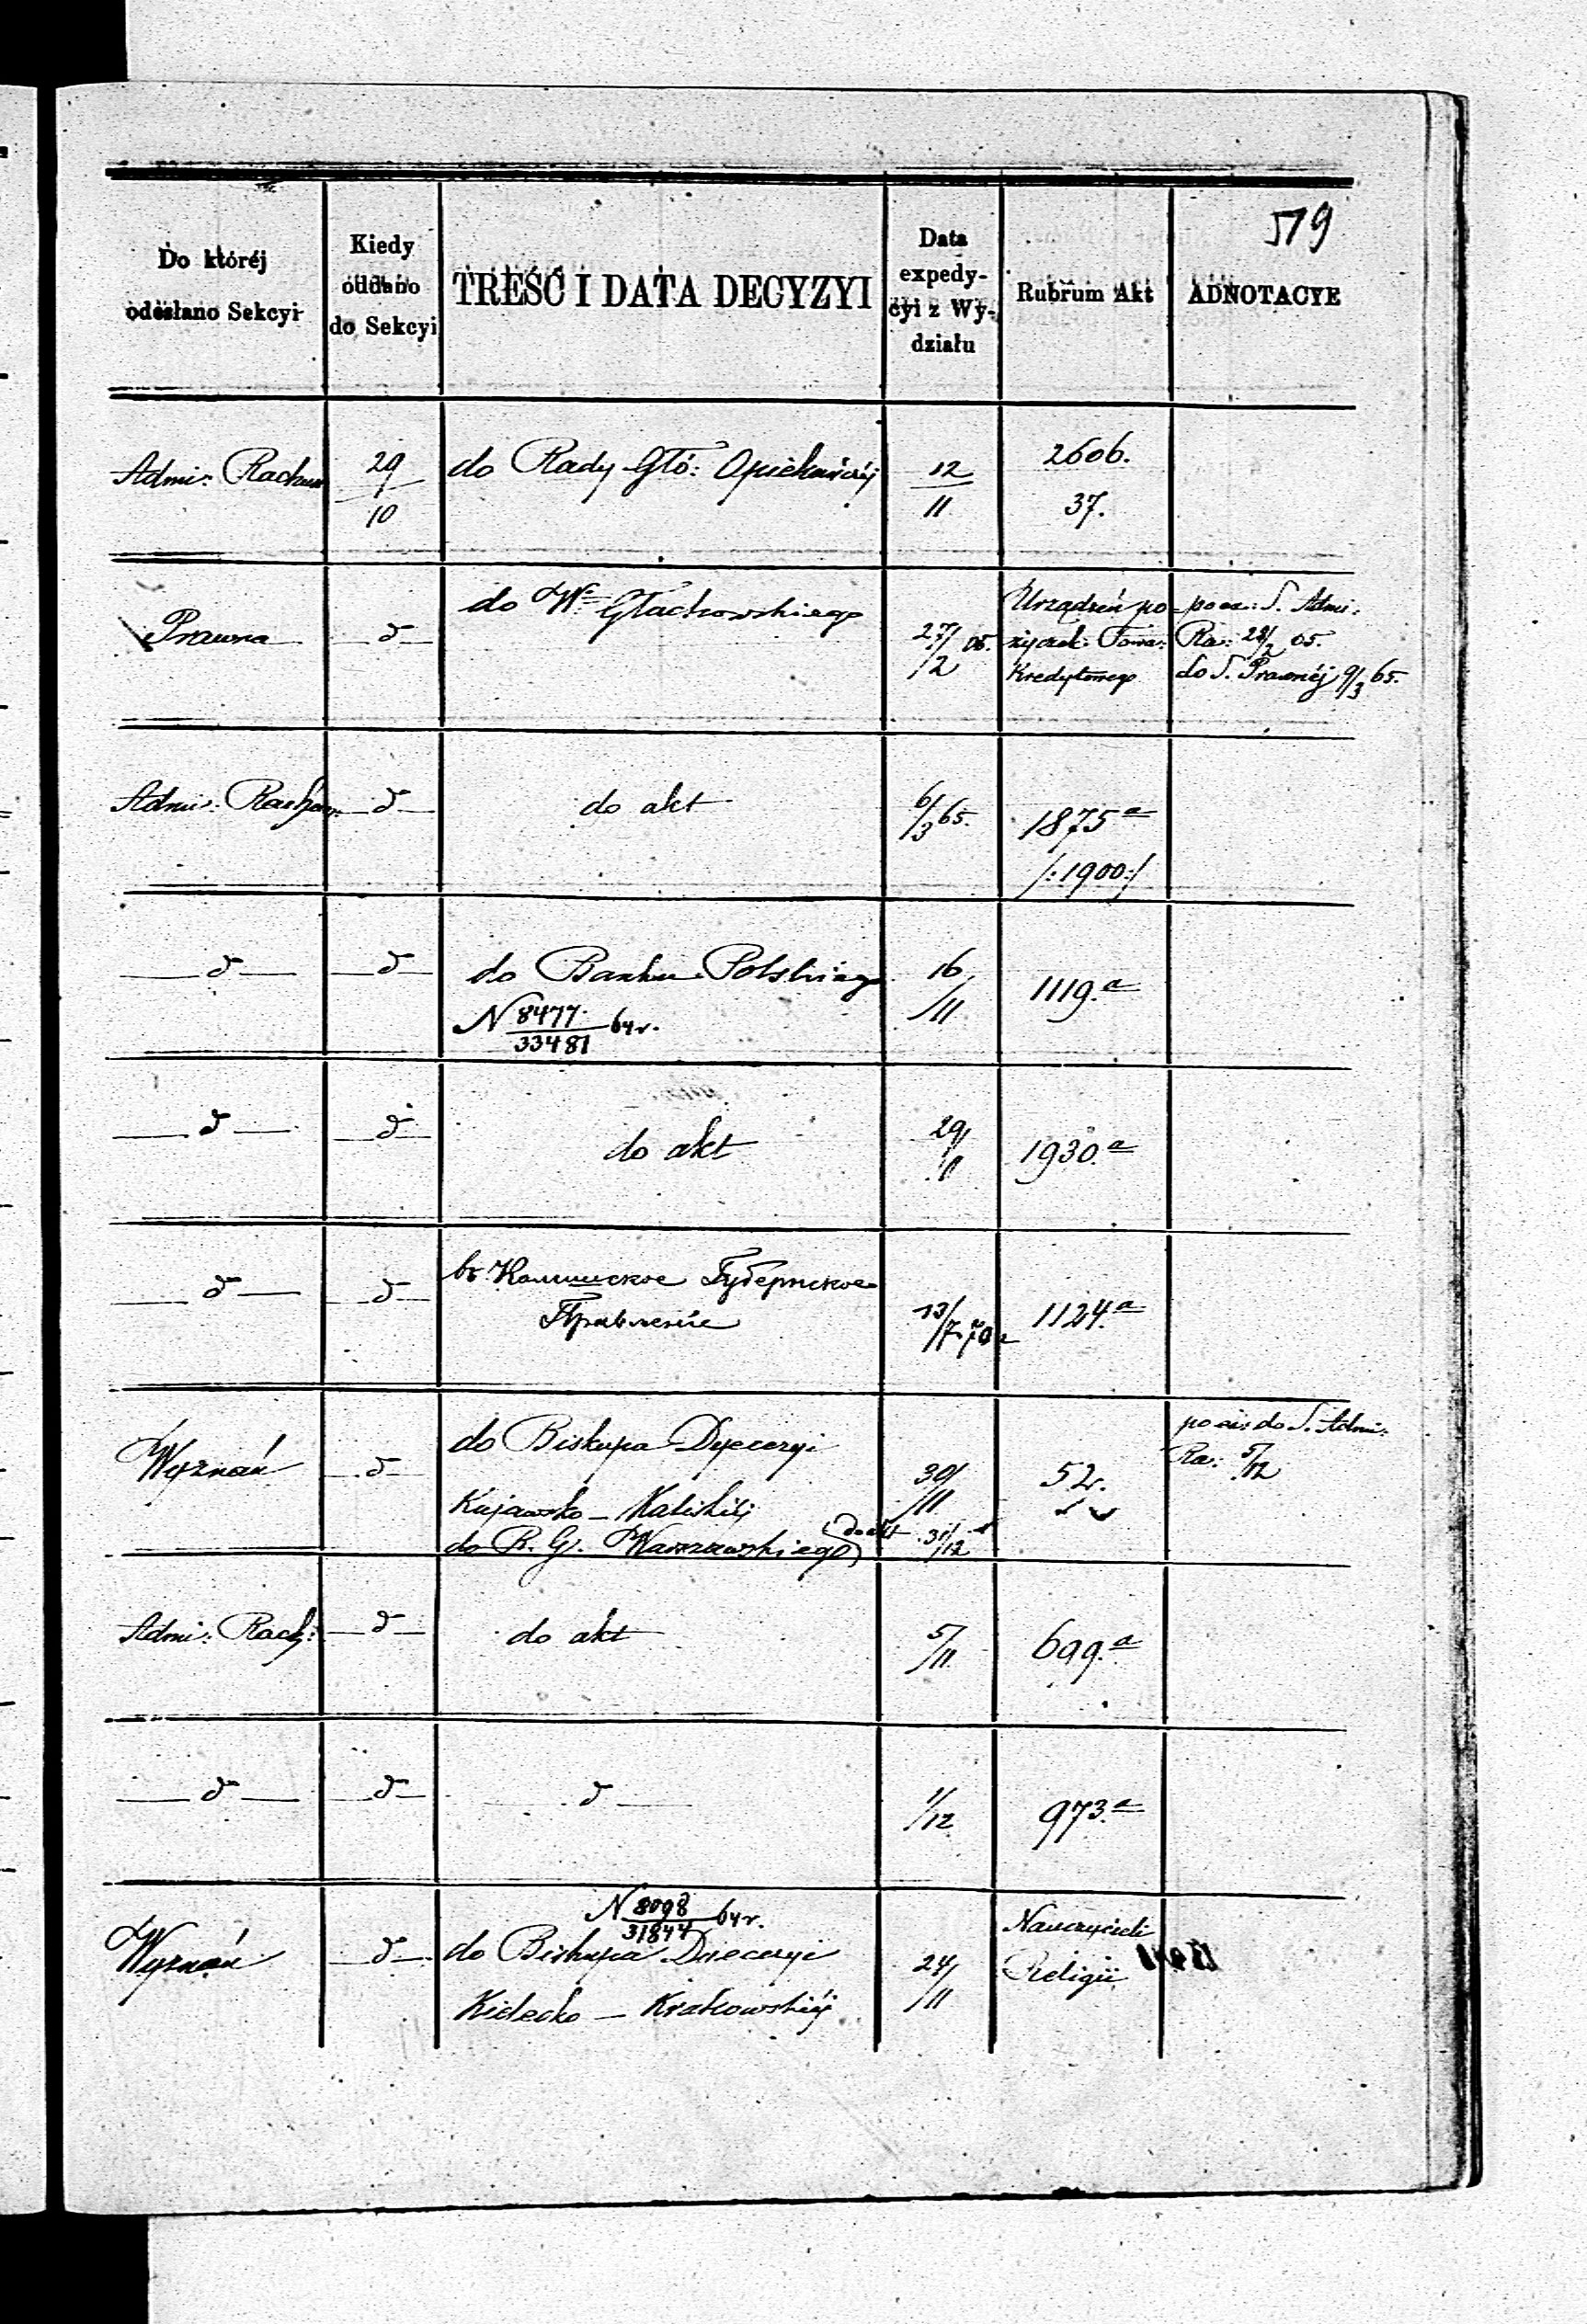 519
Do któréj
odesłano Sekcyi
Kiedy
oddano
do Sekcyi
TREŚĆ I DATA DECYZYI
Data
expedy-
cyi z Wy-
działu
Rubrum Akt
ADNOTACYE
Admi: Rachun
29/10
do Rady Głó: Opiekuńczéj
12/11
2606.
37.
Prawna
d
do Wo Głachowskiego
27/2 65.
Urządzeń po-
życzek: Towa:
Kredytowego
po oz: S. Admi:
Ra: 28/2 65.
do S. Prawnéj 9/3 65.
Admi: Rachun.
d
do akt
6/3 65.
1875 a
/:1900:/
d
d
do Banku Polskiego
N 8477/33481 64 r.
16/11
1119. a
d
d
do akt
29/11
1930. a
d
d
въ Калишское Губернское
Правленіе
13/7 70
1124. a
Wyznań
d
do Biskupa Dyecezyi
Kujawsko - Kaliskiéj
do R. G. Warszawskiego
do akt
30/11
31/12
52.
do S. Admi:
Ra: 5/12
Admi: Rach:
d
do akt
5/11
699. a
d
d
d
1/12
973. a
Wyznań
d
N 8098/31844 64 r.
do Biskupa Diecezyi
Kielecko - Krakowskiéj
24/11
Nauczycieli
Religii